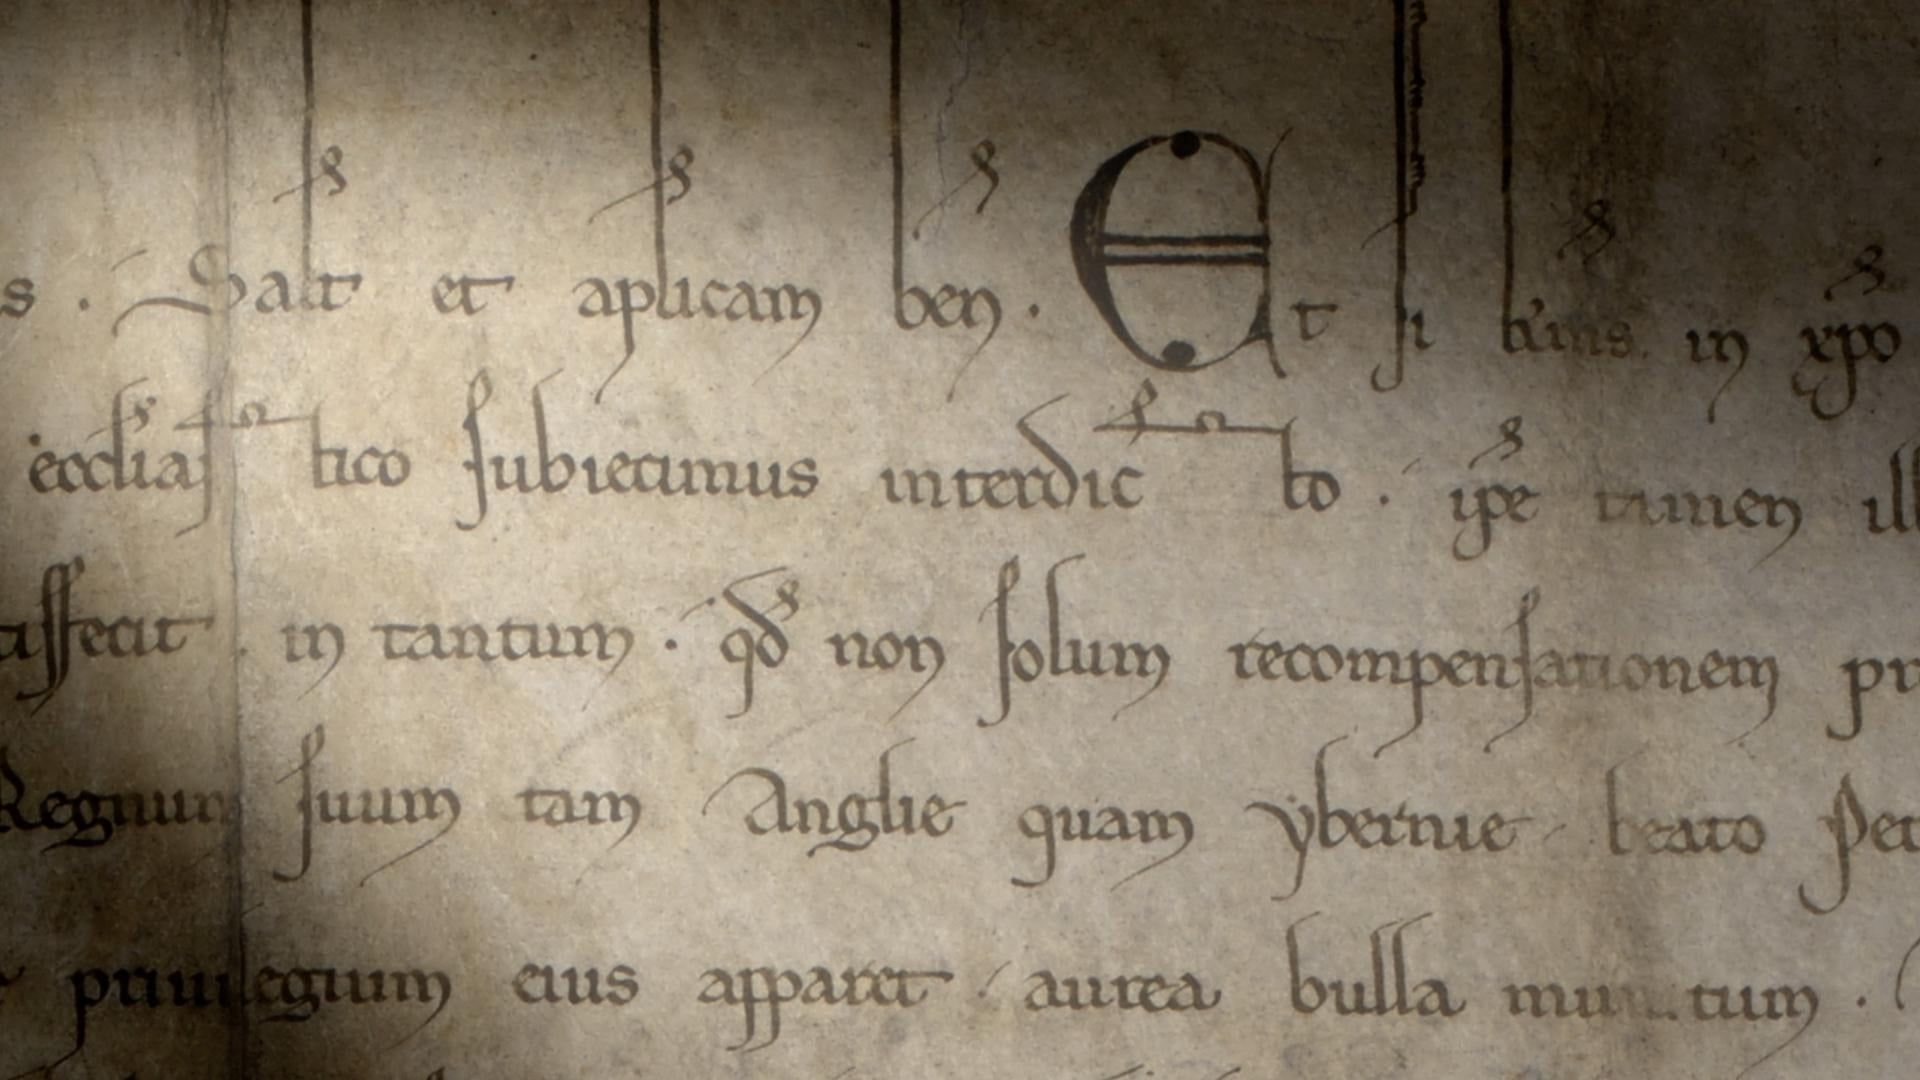 s . Salt et aplicam ben . Et si kmis in xpo
ecclias tico subiecimus interdic to . ipe tamen ill
tisfecit . in tantum . qd non solum recompensationem pr
Regnum suum tam Anglie quam ybernie beato Pet
privilegium eius apparet . aurea bulla munitum .